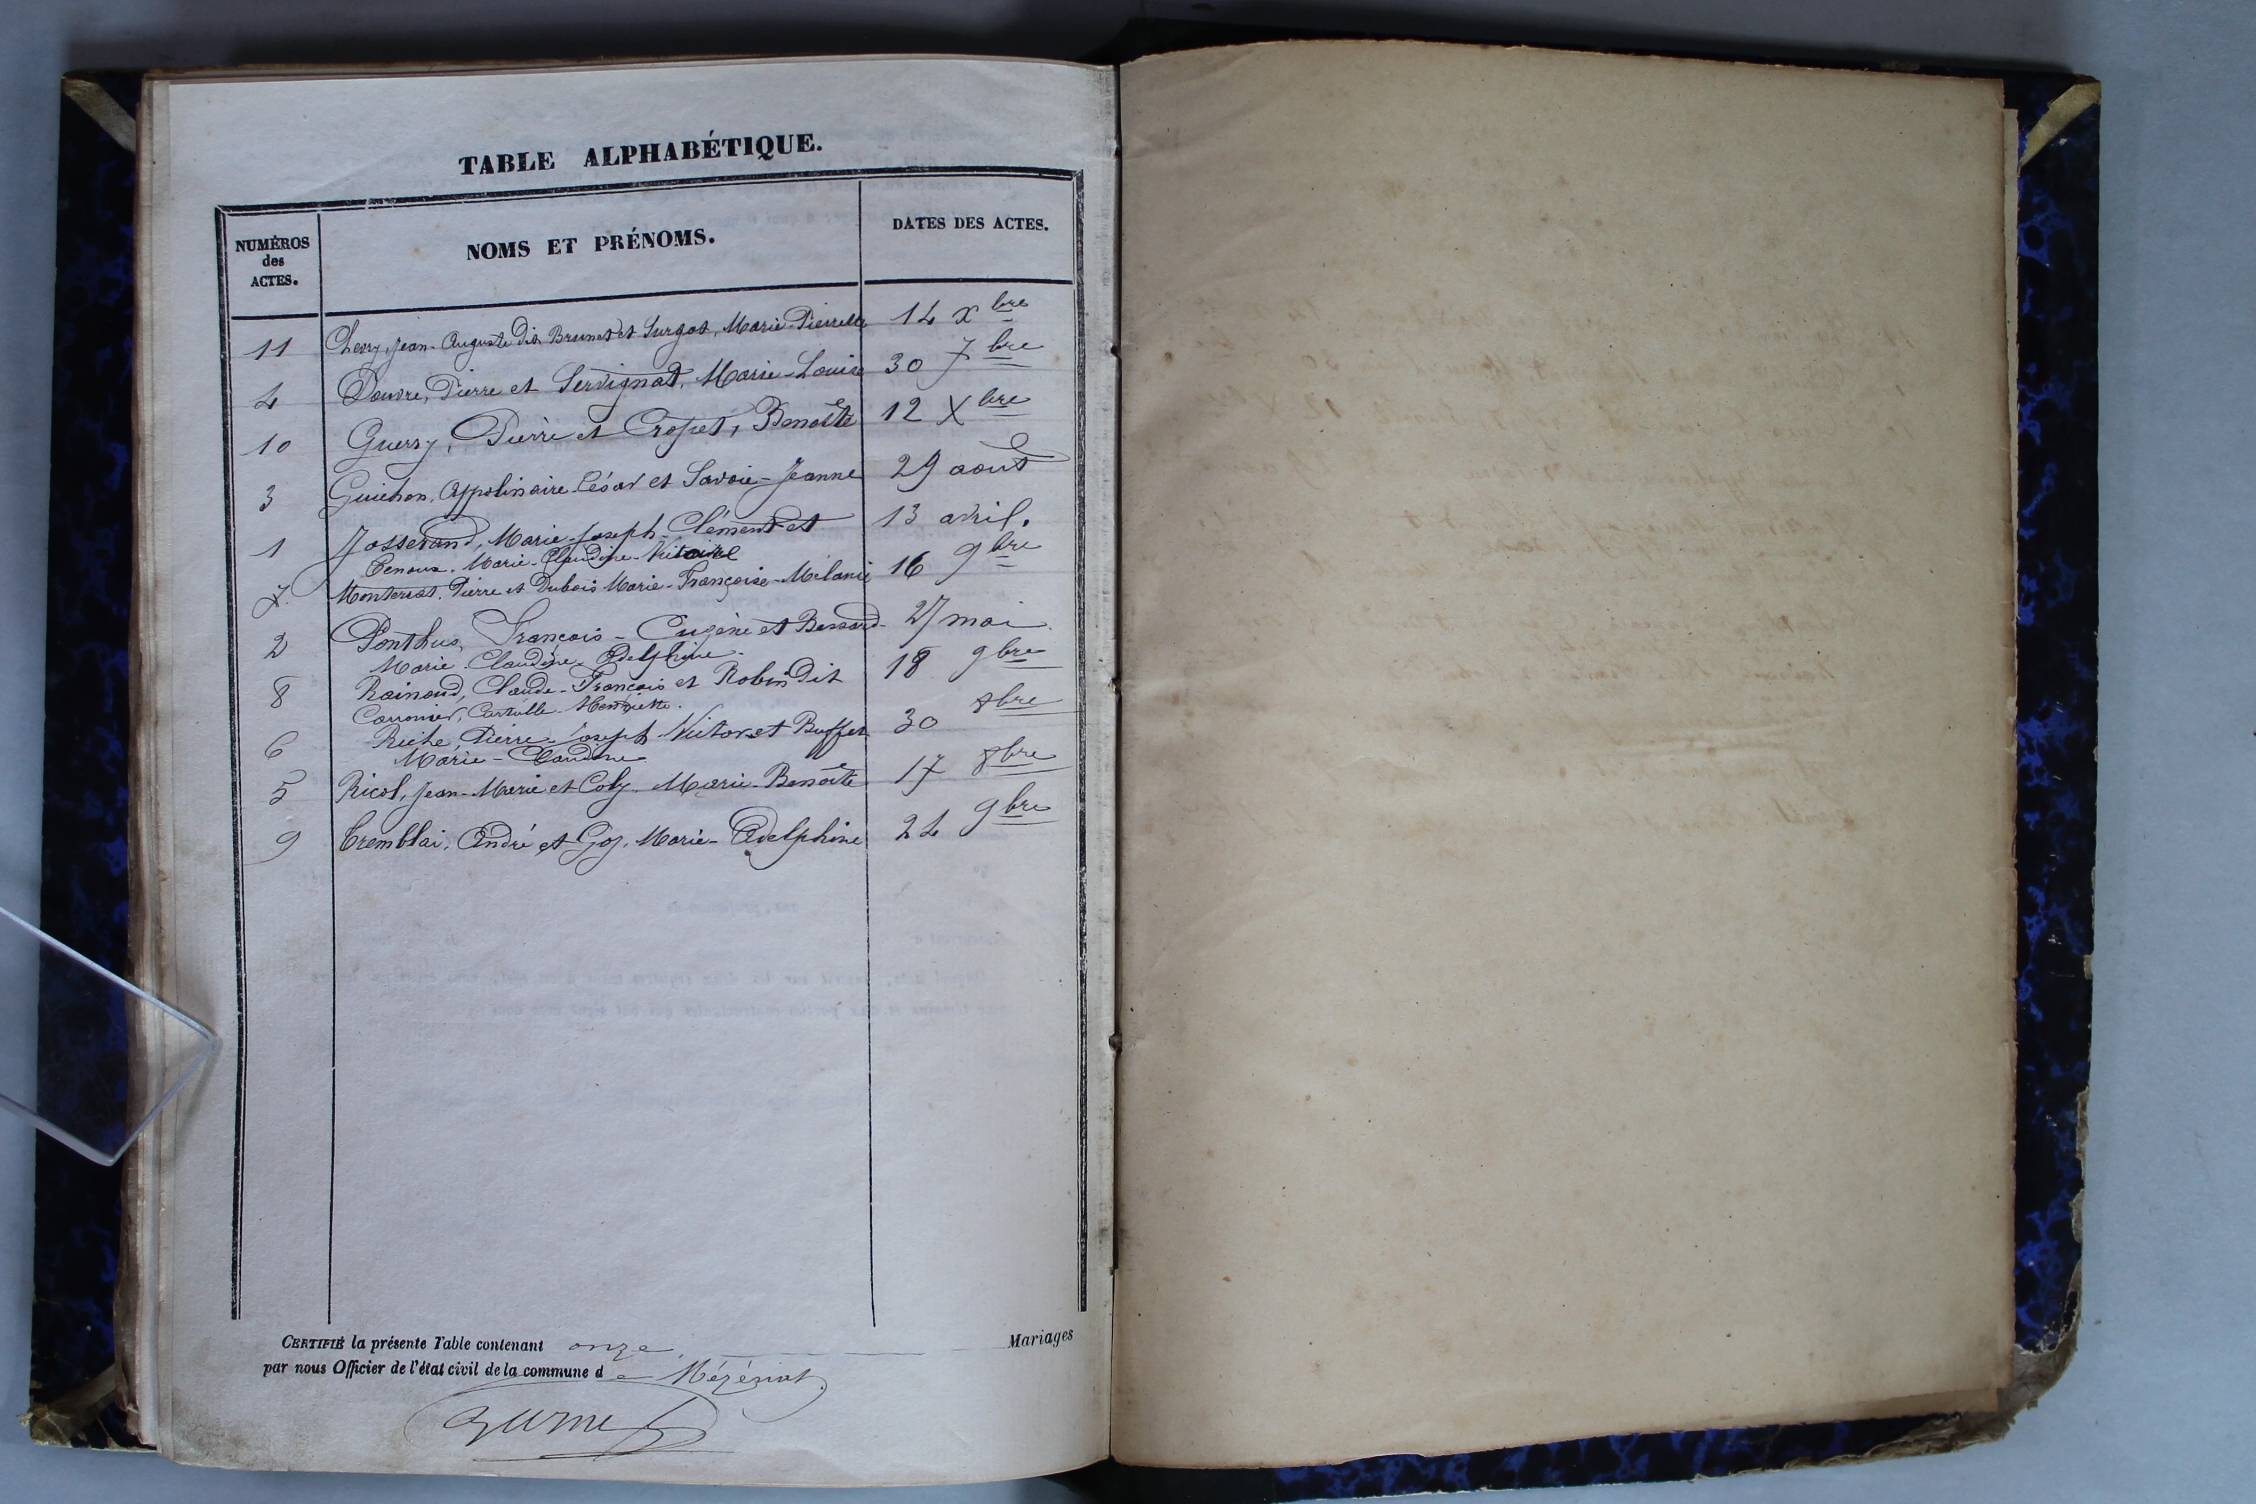 TABLE ALPHABÉTIQUE.
NUMÉROS
des
ACTES.
NOMS ET PRÉNOMS.
DATES DES ACTES.
11 Chevry, Jean-Auguste dit Brunet et Surgot, Marie-Pierrette 14 Xbre
4 Douvre, Pierre et Servignat, Marie-Louise 30 7bre
10 Guerry, Pierre et Crozet, Benoîte 12 Xbre
3 Guichon, Appolinaire César et Savoie-Jeanne 29 août
1 Josserand, Marie-Joseph-Clément et 13 avril.
Marie-Claudine-Victoire
7. Monterrat, Pierre et Dubois Marie-Françoise-Mélanie 16 9bre
2 Ponthus, François-Eugène et Bessard 27 mai
Marie-Claudine-Adelphine.
8 Rainaud, Claude-François et Robin dit 18 9bre
Henriette.
6 Riche, Pierre-Joseph-Victor et Buffet 30 8bre
Marie-Claudine
5 Ricol, Jean-Marie et Coly, Marie-Benoîte 17 8bre
9 Tremblai, André et Goy, Marie-Adelphine 24 9bre
CERTIFIÉ la présente Table contenant onze. Mariages
par nous Officier de l'état civil de la commune de Mézériat.